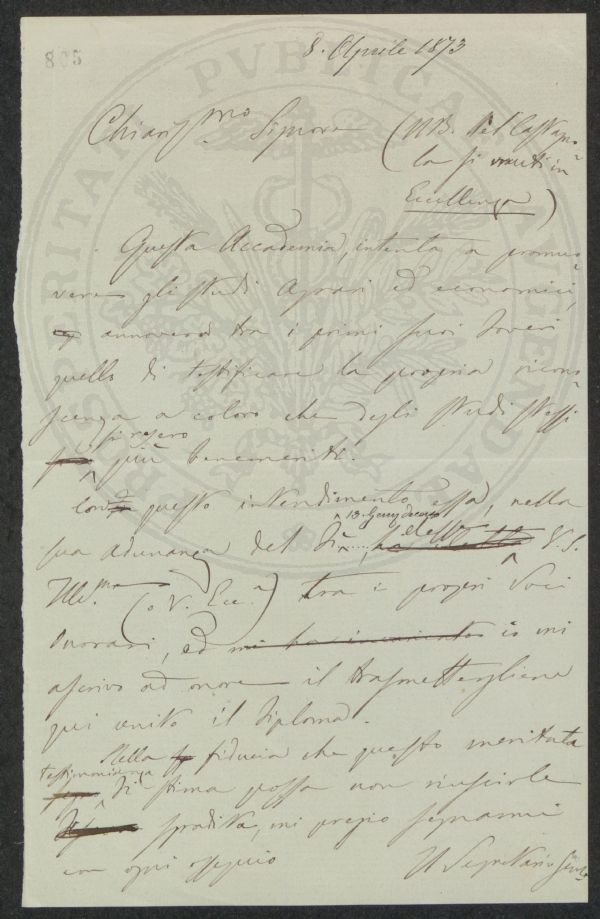 805
8. Aprile 1873
Chiariss.mo Signore (NB. Pel Castagno-
la si muti in
Eccellenza)
Questa Accademia, intenta a promuo-
vere gli studi Agrari ed economici,
annovera tra i primi suoi doveri
quello di testificare la propria ricono-
scenza a coloro che degli studi stessi
si resero
più benemeriti.
Con questo intendimento essa, nella
13. Gennajo
sua adunanza del dì elesse V.S.
Ill.ma (o V. Ecc.a) tra i propri Soci
Onorari, ed io mi
ascrivo ad onore il trasmettergliene
qui unito il diploma.
Nella fiducia che questa meritata
testimonianza
di stima possa non riuscirle
sgradita, mi pregio segnarmi
con ogni ossequio
Il Segretario
PVBLICAE
PROSPERITATI
AVGENDAE